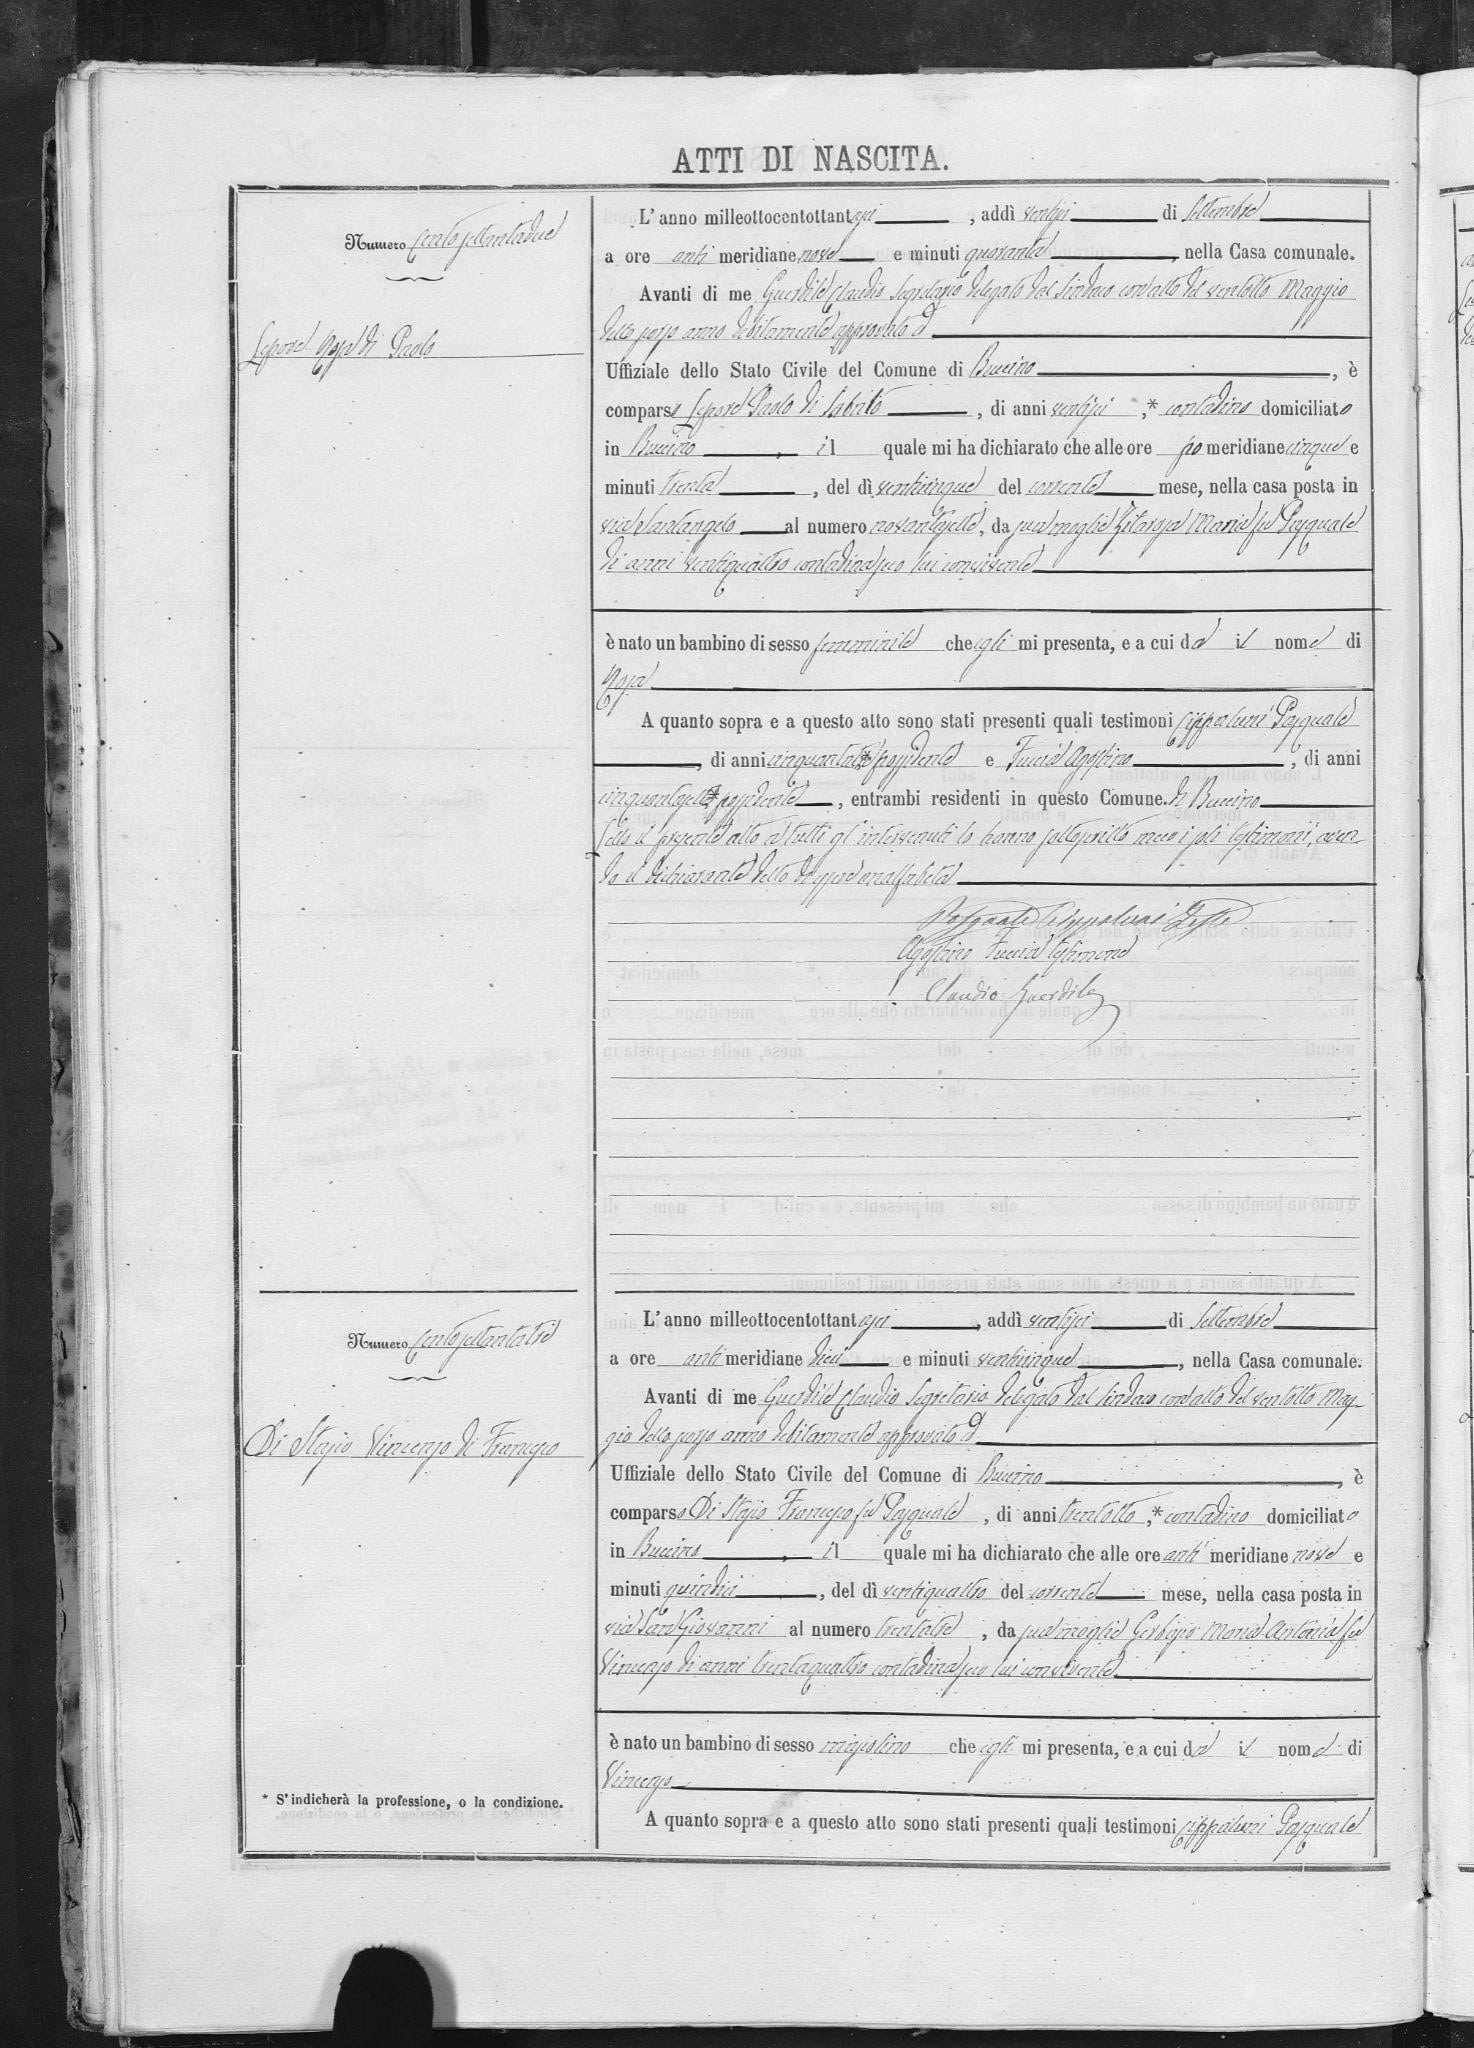 ATTI DI NASCITA.
Numero Centosettantadue
Lepore Rosa di Paolo
L' anno milleottocentottantasei , addì ventisei di Settembre
a ore anti meridiane nove e minuti quaranta , nella Casa comunale.
Avanti di me Guerdile Claudio Segretario delegato dal Sindaco con atto del ventotto Maggio
dello scorso anno debitamente approvato
Uffiziale dello Stato Civile del Comune di Buccino , è
comparso Lepore Paolo di , di anni ventisei ,* contadino domiciliato
in Buccino , il quale mi ha dichiarato che alle ore po meridiane cinque e
minuti trenta , del dì venticinque del corrente mese, nella casa posta in
via Santangelo al numero novantasette, da sua moglie Maria fu Pasquale
di anni ventiquattro contadina seco lui convivente
è nato un bambino di sesso femminile che egli mi presenta, e a cui dà il nome di
Rosa
A quanto sopra e a questo atto sono stati presenti quali testimoni Cippaluni Pasquale
, di anni * possidente e Fuccia Agostino , di anni
cinquantasette * possidente , entrambi residenti in questo Comune. di Buccino
Letto il presente atto a tutti gl' intervenuti lo hanno sottoscritto meco i soli testimoni, aven-
do il dichiarante detto di essere analfabeta
Pasquale Cippaluni Teste
Agostino Fuccia testimone
Claudio Guerdile
Numero Centosettantatre
Di Stasio Vincenzo di Francesco
L' anno milleottocentottantasei , addì ventisei di Settembre
a ore anti meridiane dieci e minuti venticinque , nella Casa comunale.
Avanti di me Guerdile Claudio Segretario delegato dal Sindaco con atto del ventotto Mag-
gio dello scorso anno debitamente approvato
Uffiziale dello Stato Civile del Comune di Buccino , è
comparso Di Stasio Francesco fu Pasquale , di anni trentotto ,* contadino domiciliato
in Buccino , il quale mi ha dichiarato che alle ore anti meridiane nove e
minuti quindici , del dì ventiquattro del corrente mese, nella casa posta in
via San Giovanni al numero trentatre , da sua moglie Gerbasio Maria Antonia fu
Vincenzo di anni trentaquattro contadina seco lui convivente
è nato un bambino di sesso mascolino che egli mi presenta, e a cui dà il nome di
Vincenzo
A quanto sopra e a questo atto sono stati presenti quali testimoni Cippaluni Pasquale
* S'indicherà la professione, o la condizione.